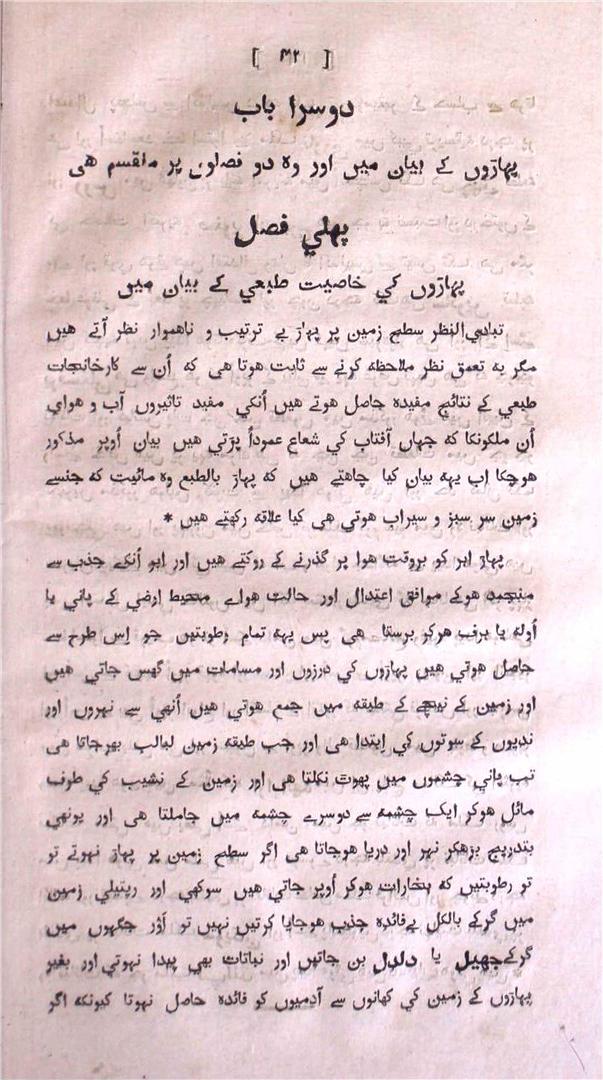 [ ۳۲ ]
دوسرا باب
پہاڑوں کے بیان میں اور وہ دو فصلوں پر منقسم هی
پہلي فصل
پہاڑوں کي خاصیت طبعي کے بیان میں
تبادي النظر سطح زمین پر پہاڑ بے ترتیب و ناهموار نظر آتے هیں
مگر بہ تعمق نظر ملاحظہ کرنے سے ثابت هوتا هی که اُن سے کارخانجات
طبعي کے نتائج مفیدہ حاصل هوتے هیں اُنکي مفید تاثیروں آب و هواي
اُن ملکونکا که جہاں آفتاب کي شعاع عموداً پڑتي هیں بیان اُوپر مذکور
هوچکا اب یهه بیان کیا چاهتے هیں که پہاڑ بالطبع وہ مائیت که جنسے
زمین سر سبز و سیراب هوتي هی کیا علاقه رکھتے هیں *
پہاڑ ابر کو بروقت هوا پر گذرنے کے روکتے هیں اور ابو اُنکے جذب سے
منجمد هوکے موافق اعتدال اور حالت هواے محیط ارضي کے پاني یا
اُولہ یا برف هوکر برستا هی پس یهه تمام رطوبتیں جو اِس طرح سے
حاصل هوتي هیں پہاڑوں کي درزوں اور مسامات میں گھس جاتي هیں
اور زمین کے نیچے کے طبقه میں جمع هوتي هیں اُنھي سے نہروں اور
ندیوں کے سوتوں کي اِبتدا هی اور جب طبقه زمین لبالب بھرجاتا هی
تب پاني چشموں میں پھوت نکلتا هی اور زمین کے نشیب کي طرف
مائل هوکر ایک چشمه سے دوسرے چشمه میں جاملتا هی اور یونھي
بتدریج بڑھکر نہر اور دریا هوجاتا هی اگر سطح زمین پر پہاڑ نہوتے تو
تو رطوبتیں که بخارات هوکر اُوپر جاتي هیں سوکھي اور ریتیلي زمین
میں گرکے بالکل بےفائدہ جذب هوجایا کرتیں نہیں تو اَوْر جگہوں میں
گرکے جھیل یا دلدل بن جاتیں اور نباتات بھی پیدا نہوتي اور بغیر
پہاڑوں کے زمین کي کھانوں سے آدمیوں کو فائدہ حاصل نہوتا کیونکه اگر